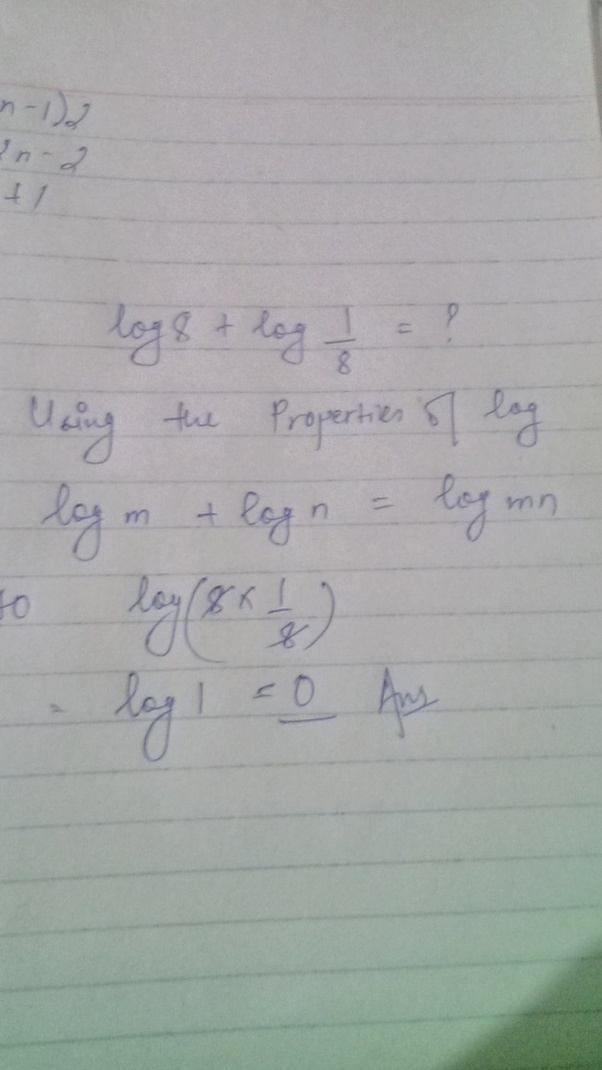 n-1)2
2n-2
+1
log 8 + log 1/8 = ?
Using the Properties of log
log m + log n = log mn
so log(8 × 1/8)
= log 1 = 0 Ans